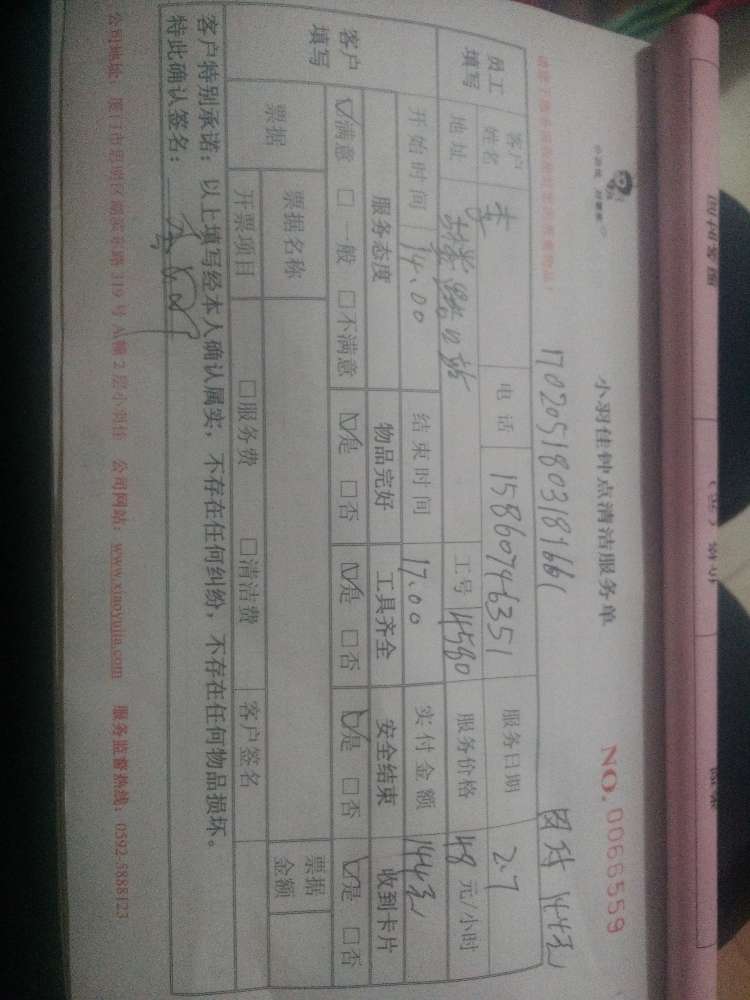 小羽佳钟点清洁服务单
NO. 0066559
1702051803181661
144元
员工填写
客户姓名 李 电话 15860746351 服务日期 2.7
地址 站 工号 4580 服务价格 48 元/小时
开始时间 14.00 结束时间 17.00 实付金额 144元
客户填写
服务态度 物品完好 工具齐全 安全结束 收到卡片
☑满意 □一般 □不满意 ☑是 □否 ☑是 □否 ☑是 □否 ☑是 □否
票据 票据名称 票据金额
开票项目 □服务费 □清洁费 客户签名
客户特别承诺：以上填写经本人确认属实，不存在任何纠纷，不存在任何物品损坏。
特此确认签名：
公司地址：厦门市思明区湖滨东路 319 号 A 幢 2 层小羽佳 公司网站：www.xiaoyujia.com 服务监督热线：0592-5885123